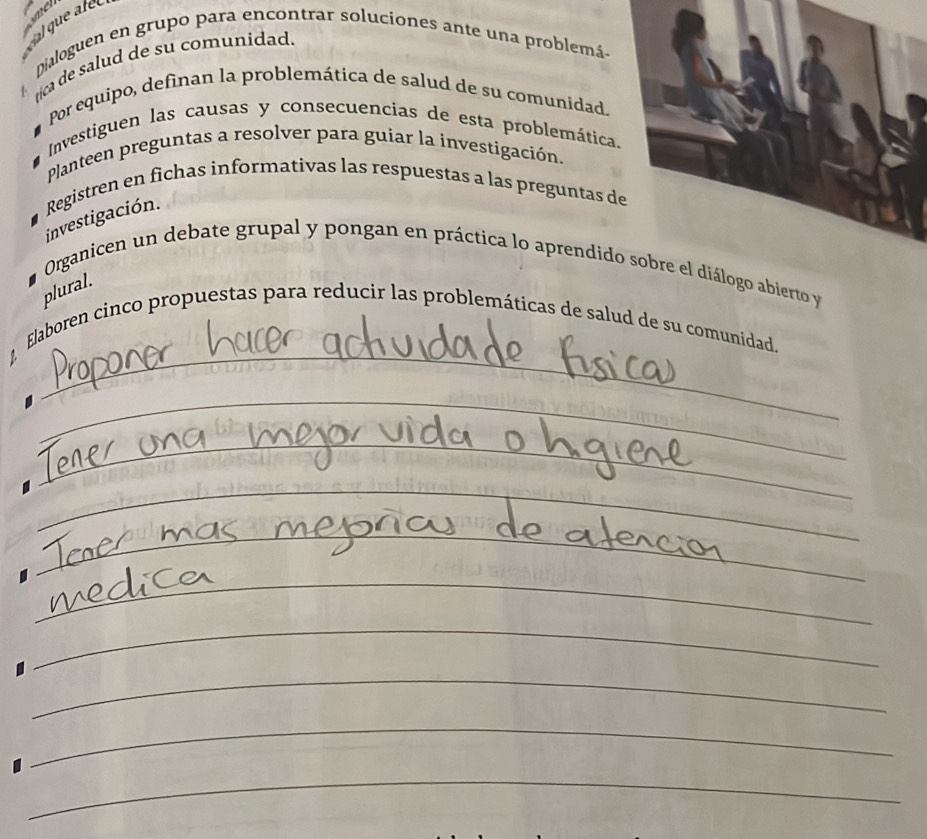 social que afec
1. Dialoguen en grupo para encontrar soluciones ante una problemá-
tica de salud de su comunidad.
Por equipo, definan la problemática de salud de su comunidad.
Investiguen las causas y consecuencias de esta problemática.
Planteen preguntas a resolver para guiar la investigación.
Registren en fichas informativas las respuestas a las preguntas de
investigación.
Organicen un debate grupal y pongan en práctica lo aprendido sobre el diálogo abierto y
plural.
2. Elaboren cinco propuestas para reducir las problemáticas de salud de su comunidad.
Proponer hacer actividade fisicas
Tener una mejor vida o higiene
Tener mas mejorias de atencion
medica